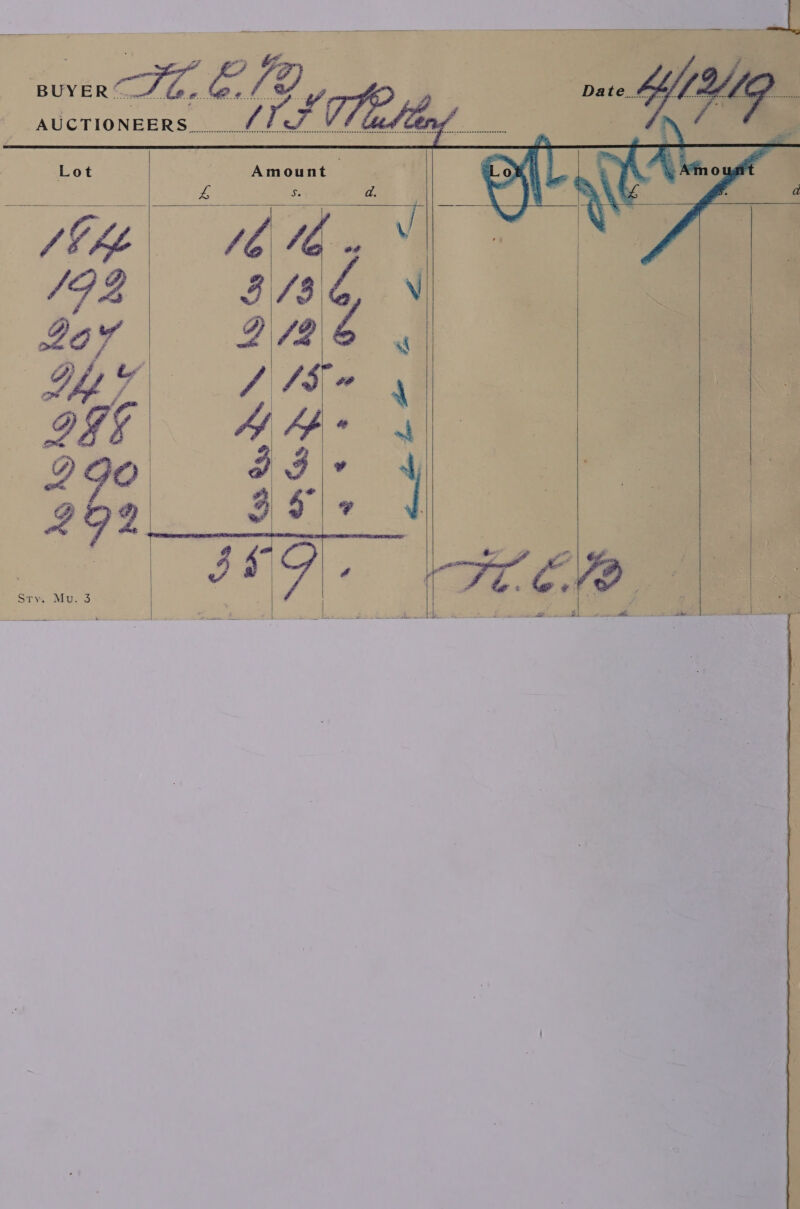 BUYER H. C. B. Date 4/12/19
AUCTIONEERS
Lot Amount Lot Amount
£ s. d. £ s. d
184 16 16 "
192 3 13 6
207 2 12 6
247 1 15 "
288 4 4 "
290 3 3 "
292 3 5 "
35 9 . H. C. B
Sty. Mu. 3